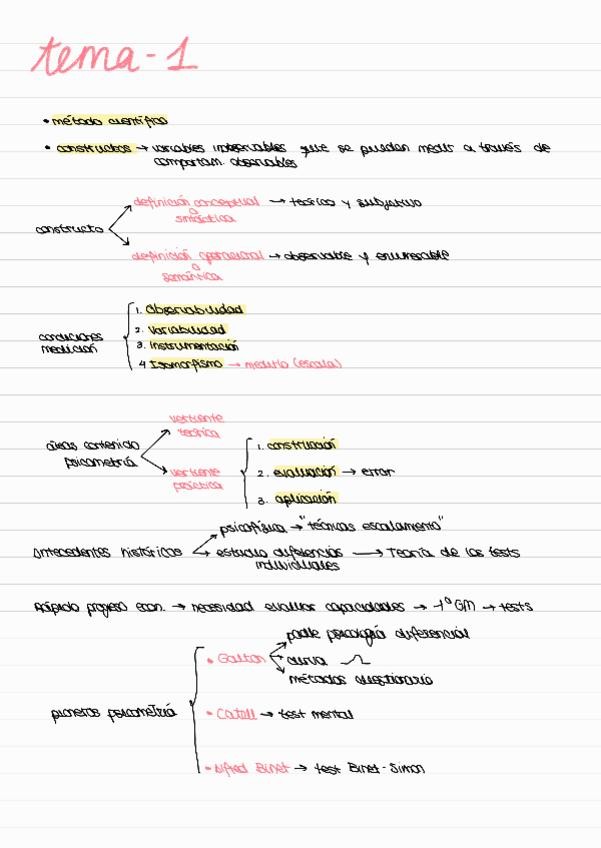 tema-1
• método científico
• constructos → variables inobservables que se pueden medir a través de
comportam. observables
definición conceptual → teórico y subjetivo
o
sintáctica
constructo
definición operacional → observable y enumerable
o
semántica
1. Observabilidad
2. Variabilidad
condiciones
medición
3. Instrumentación
4 Isomorfismo → medirlo (escala)
vertiente
teórica
áreas contenido
psicometría
vertiente
práctica
1. construcción
2. evaluación → error
3. aplicación
psicofísica → "técnicas escalamiento"
antecedentes históricos → estudio diferencias → Teoría de los tests
individuales
Rápido progreso econ. → necesidad evaluar capacidades → 1ª GM → tests
padre psicología diferencial
• Galton → curva
métodos cuestionario
pioneros psicometría
• Catell → test mental
• Alfred Binet → test Binet-Simon